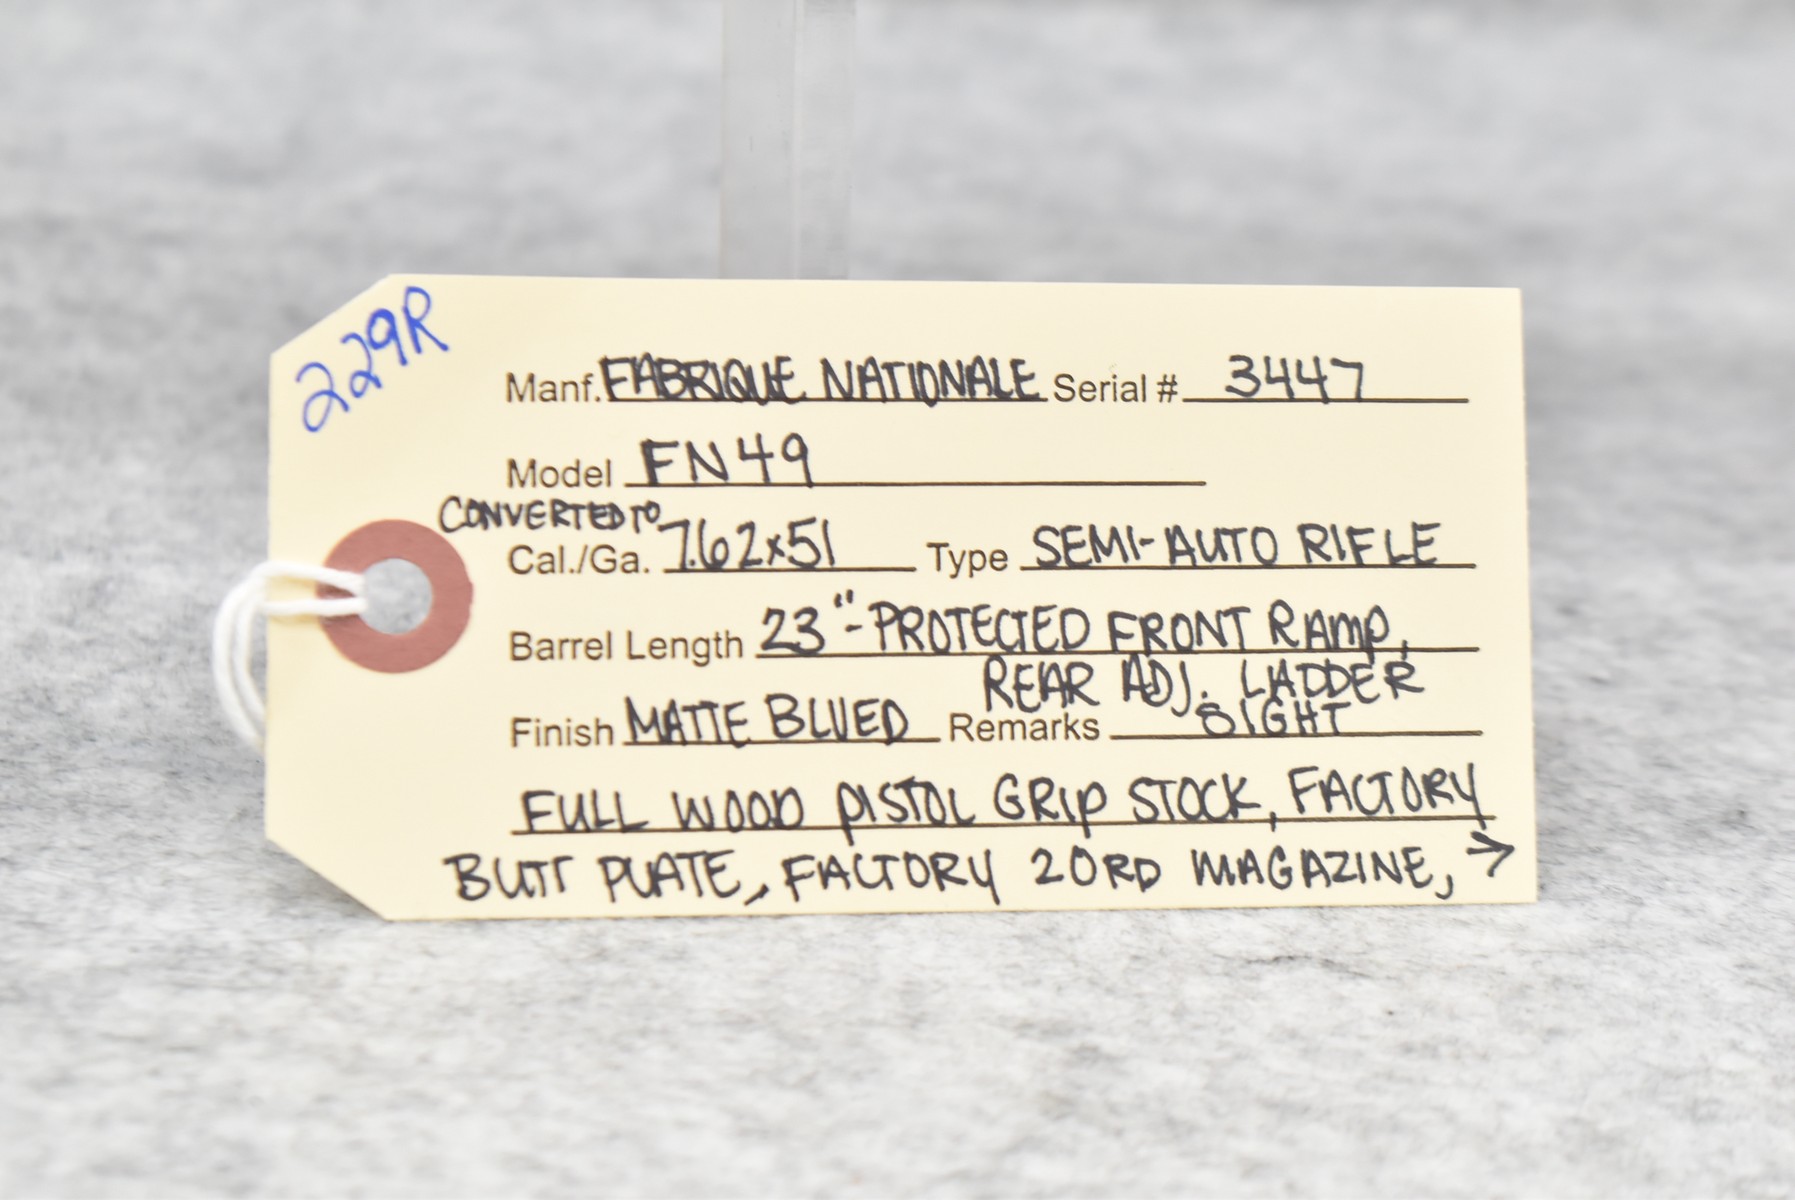 229R
Manf. FABRIQUE NATIONALE Serial # 3447
Model FN49
CONVERTED TO
Cal./Ga. 7.62x51 Type SEMI-AUTO RIFLE
Barrel Length 23"-PROTECTED FRONT RAMP,
REAR ADJ. LADDER
Finish MATTE BLUED Remarks SIGHT
FULL WOOD PISTOL GRIP STOCK, FACTORY
BUTT PLATE, FACTORY 20RD MAGAZINE, →